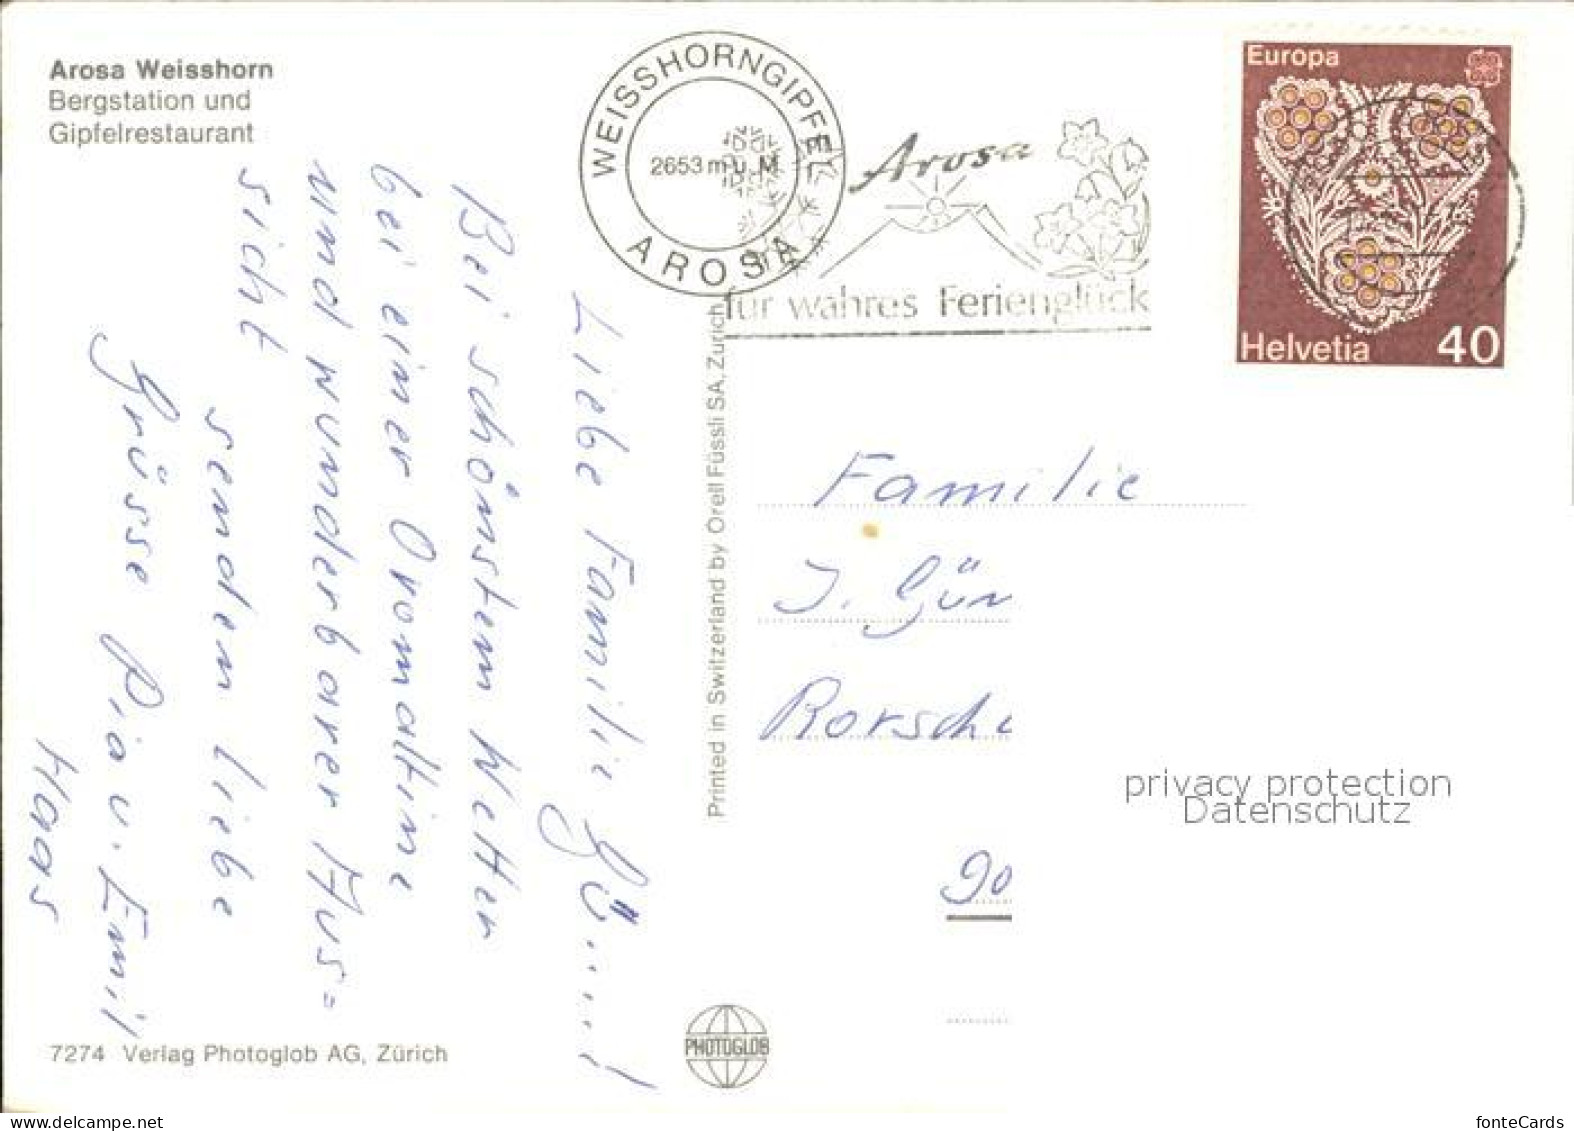 Arosa Weisshorn
Bergstation und
Gipfelrestaurant
WEISSHORNGIPFEL
2653 m ü. M.
AROSA
Arosa
für wahres Ferienglück
Europa
Helvetia 40
Liebe Familie Gü.....!
Bei schönstem Wetter
bei einer Ovomaltine
und wunderbarer Aus=
sicht
senden liebe
Grüsse Pia u. Emil
Haas
Printed in Switzerland by Orell Füssli SA, Zürich
Familie
J. Gün
Rorsch
90
privacy protection
Datenschutz
7274 Verlag Photoglob AG, Zürich
PHOTOGLOB
fonteCards